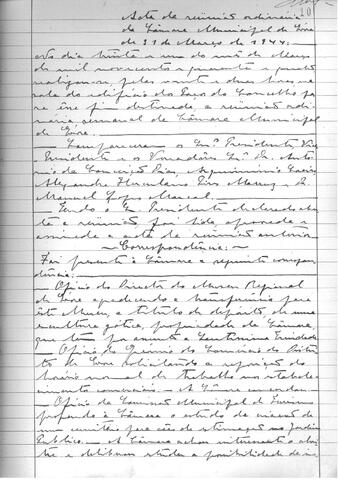 10
Acta da reunião ordinária
da Câmara Municipal de Évora
de 31 de Março de 1944:
Aos dia trinta e um do mês de Março
de mil novecentos e quarenta e quatro
realizou-se, pelas vinte e duas horas, na
sala do edifício dos Paços do Concelho
para esse fim destinada a reunião ordi-
nária semanal da Câmara Municipal
de Évora.
Compareceram o Snr. Presidente, Vice
Presidente e os Vereadores Snrs. Dr. Antó-
nio da Conceição Dias, Argeminiro
Alexandre Herculano Pires e Dr.
Manuel Lopes Marçal.
Tendo o Snr. Presidente declarado aber-
ta a reunião foi lida, aprovada e
assinada a acta da reunião anterior
Correspondência:
Foi presente à Câmara a seguinte correspon-
dência:
Ofício do Director do Museu Regional
de Évora a transferência para
este Museu, a título de depósito, de uma
escultura gótica, propriedade da Câmara,
que tem
Ofício do Grémio do Comércio do Distri-
to de Évora solicitando a
horário normal de trabalho nos estabele-
cimentos comerciais. A Câmara concordou.
Ofício da Comissão Municipal de Turismo
propondo à Câmara o estudo da criação de
um no Jardim
Público. A Câmara achou interessante a
e deliberou estudar a possibilidade de